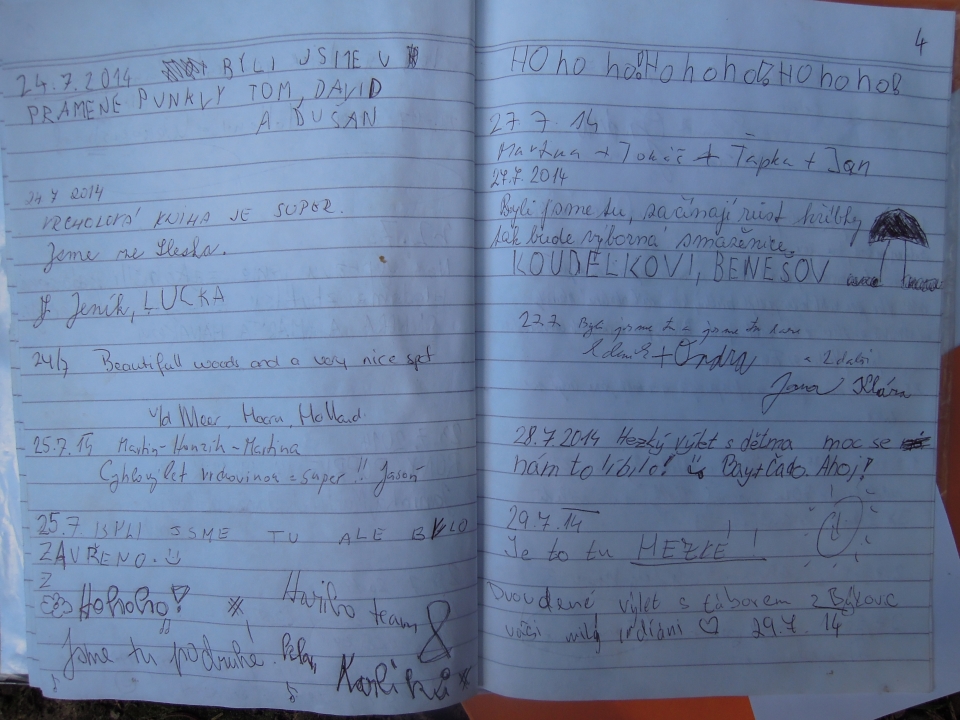 24.7.2014 BYLI JSME U
PRAMENE PUNKVY TOM, DAVID
A DUŠAN
24 7 2014
VRCHOLOVÁ KNIHA JE SUPER.
Jsme ze
Jeník, LUCKA
24/7 Beautifull woods and a very nice spot
v/d Meer, Holland
25.7.14 Martin-Honzík-Martina
Cyklovýlet vrchovinou = super!!
25.7 BYLI JSME TU ALE BYLO
ZAVŘENO.
Hohoho!
Hariho team
&
Jsme tu podruhé.
4
HOho hoh! Hohoho! HOhoho!
27 7 14
Martina + + Ťapka + Jan
27.7.2014
Byli jsme tu, začínají růst hřibky
tak bude výborná smaženice.
KOUDELKOVI, BENEŠOV
27.7 Byli jsme tu a jsme tu
Zdeněk + Ondra a 2 další
Jana Klára
28.7.2014 Hezký výlet s dětma moc se
nám to líbilo! Ahoj!
29.7.14
Je to tu HEZKÉ!
Dvoudenní výlet s táborem z
vaši milý indiáni ♡ 29.7. 14